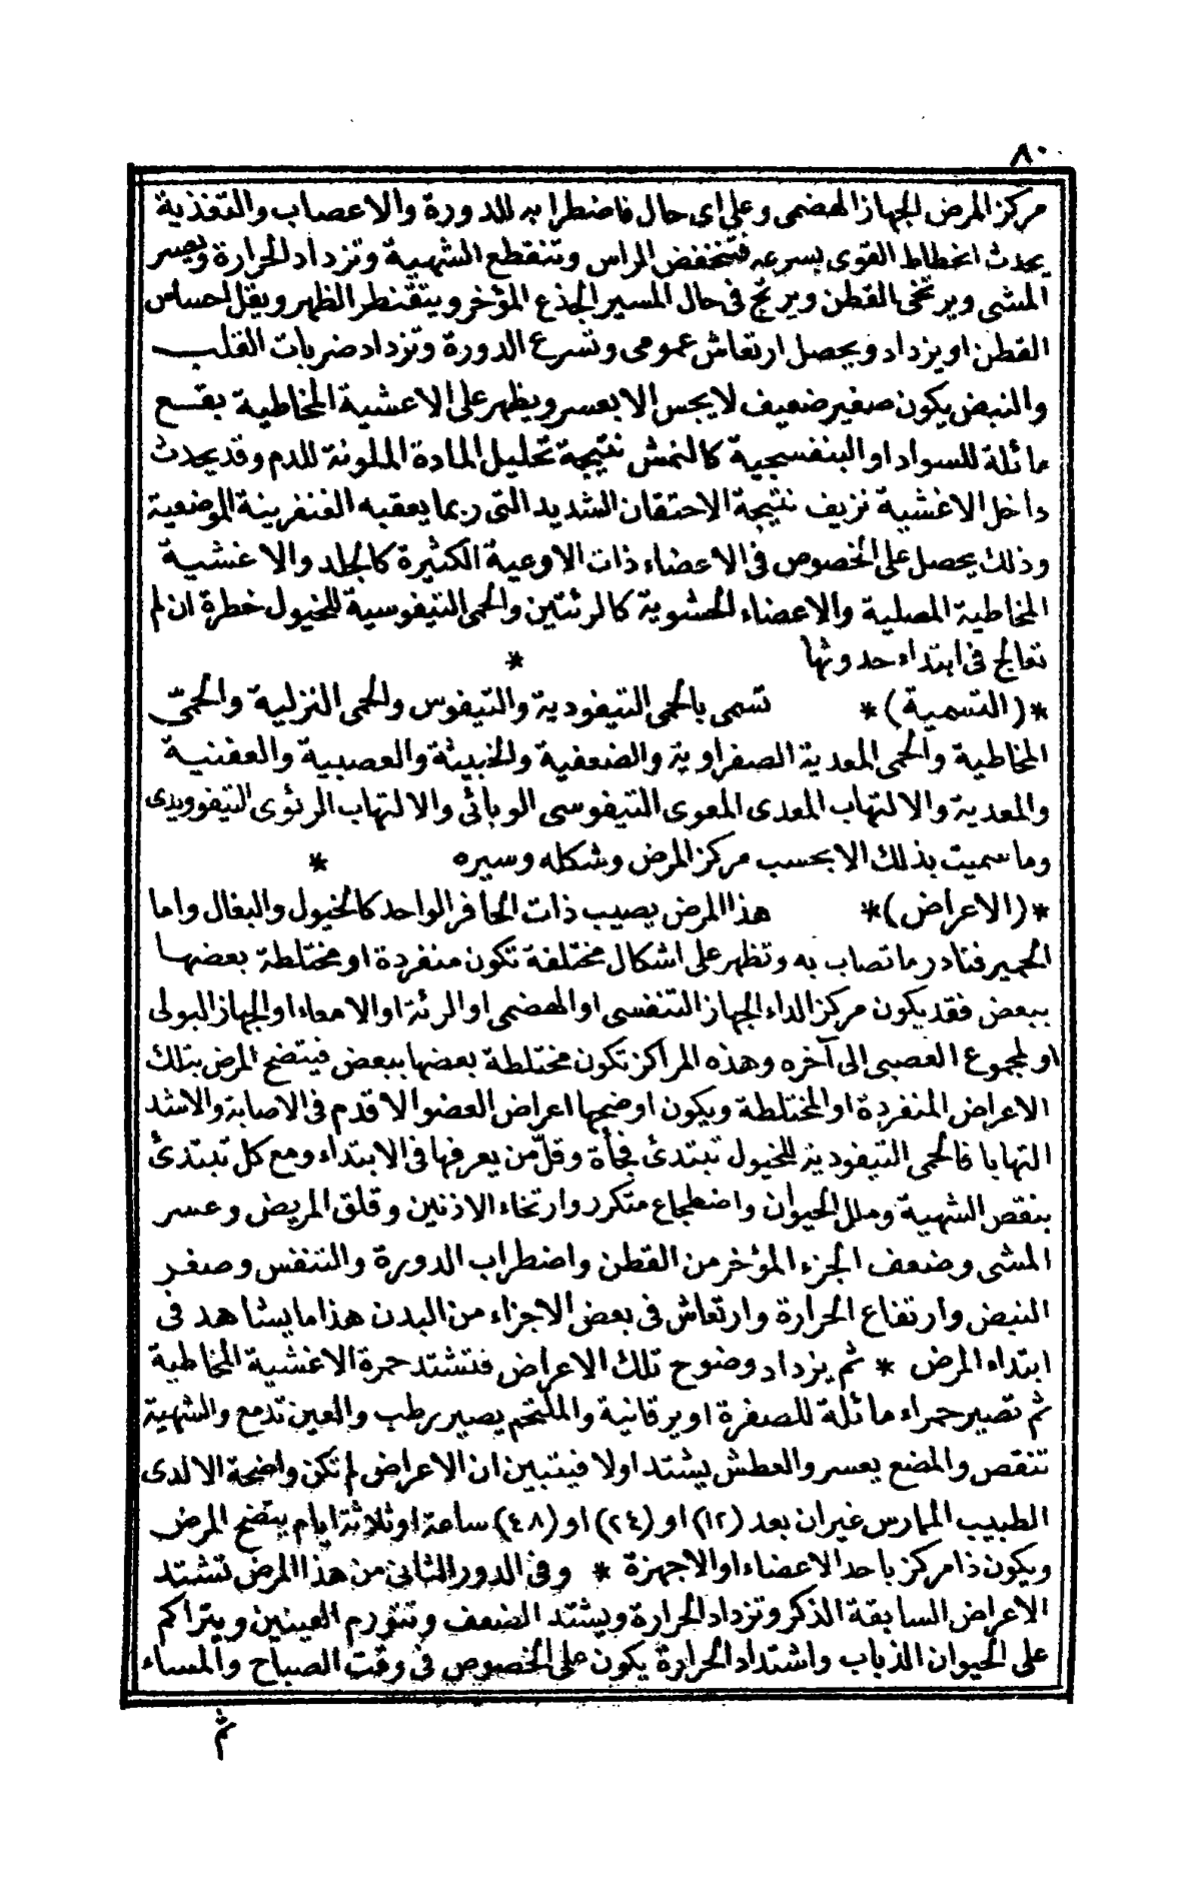 ٨٠
مركز المرض الجهاز الهضمى وعلى اى حال فاضطرابه للدورة والاعصاب والتغذية
يحدث انحطاط القوى بسرعه فتنخفض الراس وتنقطع الشهية وتزداد الحرارة ويعسر
المشى ويرتخى القطن ويرتج فى حال المسير الجذع المؤخر ويتقنطر الظهر ويقل احساس
القطن او يزداد ويحصل ارتعاش عمومى وتسرع الدورة وتزداد ضربات القلب
والنبض يكون صغير ضعيف لا يجس الا بعسر ويظهر على الاغشية المخاطية بقسع
مائلة للسواد او البنفسجية كالنمش نتيجة تحليل المادة الملونة للدم وقد يحدث
داخل الاغشية نزيف نتيجة الاحتقان الشديد التى ربما يعقبه الغنغرينة الموضعية
وذلك يحصل على الخصوص فى الاعضاء ذات الاوعية الكثيرة كالجلد والاغشية
المخاطية المصلية والاعضاء الحشوية كالرئتين والحمى التيفوسية للخيول خطرة ان لم
تعالج فى ابتداء حدوثها *
*(التسمية)* تسمى بالحمى التيفودية والتيفوس والحمى النزلية والحمىّ
المخاطية والحمى المعدية الصفراوية والضعفية والخبيثة والعصبية والعفنية
والمعدية والالتهاب المعدى المعوى التيفوسى الوبائى والالتهاب الرئوى التيفوويدى
وما سميت بذلك الا بحسب مركز المرض وشكله وسيره *
*(الاعراض)* هذا المرض يصيب ذات الحافر الواحد كالخيول والبغال واما
الحمير فنادر ما تصاب به وتظهر على اشكال مختلفة تكون منفردة او مختلطة بعضها
ببعض فقد يكون مركز الداء الجهاز التنفسى او الهضمى او الرئة او الامعاء او الجهاز البولى
او لمجموع العصبى الى آخره وهذه المراكز تكون مختلطة بعضها ببعض فيتضح المرض بتلك
الاعراض المنفردة او المختلطة ويكون اوضحها اعراض العضو الاقدم فى الاصابة والاشد
التهابا فالحمى التيفودية للخيول تبتدئ فجأة وقلّ من يعرفها فى الابتداء ومع كل تبتدئ
بنقص الشهية وملل الحيوان واضطجاع متكرر وارتخاء الاذنين وقلق المريض وعسر
المشى وضعف الجزء المؤخر من القطن واضطراب الدورة والتنفس وصغر
النبض وارتفاع الحرارة وارتعاش فى بعض الاجزاء من البدن هذا ما يشاهد فى
ابتداء المرض * ثم يزداد وضوح تلك الاعراض فتشتد حمرة الاغشية المخاطية
ثم تصير حمراء مائلة للصفرة او يرقانية والملتحم يصير رطب والعين تدمع والشهية
تنقص والمضع بعسر والعطش يشتد اولا فيتبين ان الاعراض لم تكن واضحة الا لدى
الطبيب الممارس غير ان بعد (١٢) او (٢٤) او (٤٨) ساعة او ثلاثة ايام يتضح المرض
ويكون ذا مركز باحد الاعضاء او الاجهزة * وفى الدور الثانى من هذا المرض تشتد
الاعراض السابقة الذكر وتزداد الحرارة ويشتد الضعف وتتورم العينين ويتراكم
على الحيوان الذباب واشتداد الحرارة يكون على الخصوص فى وقت الصباح والمساء
ثم